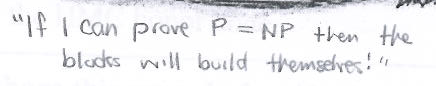 "If I can prove P = NP then the
blocks will build themselves!"